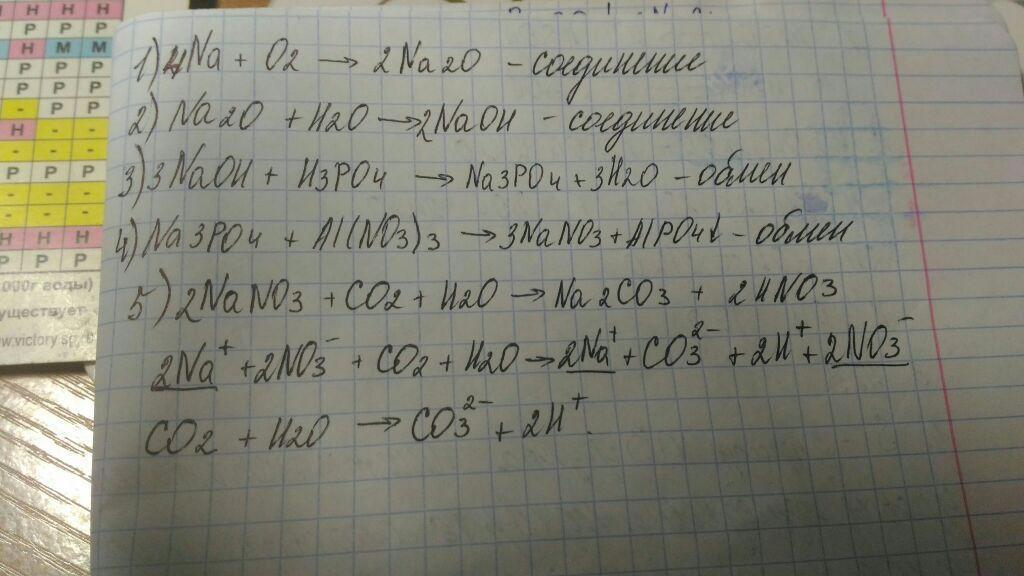 Н Н Н Н
Р Р Р Р
Н М М
Р Р Р
Р Р Р
- Р Р
Н - -
- - -
Р Р Р Р
- - -
- - -
Н Н Н Н
Р Р Р Р
000г воды)
уществует
w.victory
1) 4Na + O2 → 2Na2O - соединение
2) Na2O + H2O → 2NaOH - соединение
3) 3NaOH + H3PO4 → Na3PO4 + 3H2O - обмен
4) Na3PO4 + Al(NO3)3 → 3NaNO3 + AlPO4↓ - обмен
5) 2NaNO3 + CO2 + H2O → Na2CO3 + 2HNO3
2Na⁺ + 2NO3⁻ + CO2 + H2O → 2Na⁺ + CO3²⁻ + 2H⁺ + 2NO3⁻
CO2 + H2O → CO3²⁻ + 2H⁺.